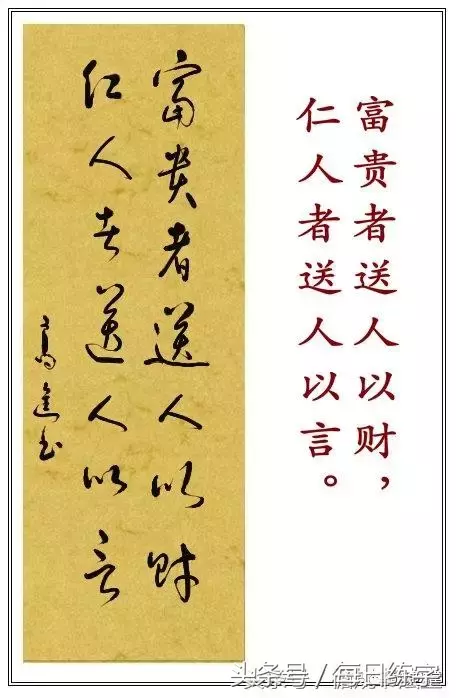 富贵者送人以财，
仁人者送人以言。
富贵者送人以财
仁人者送人以言
头条号 / 每日练字